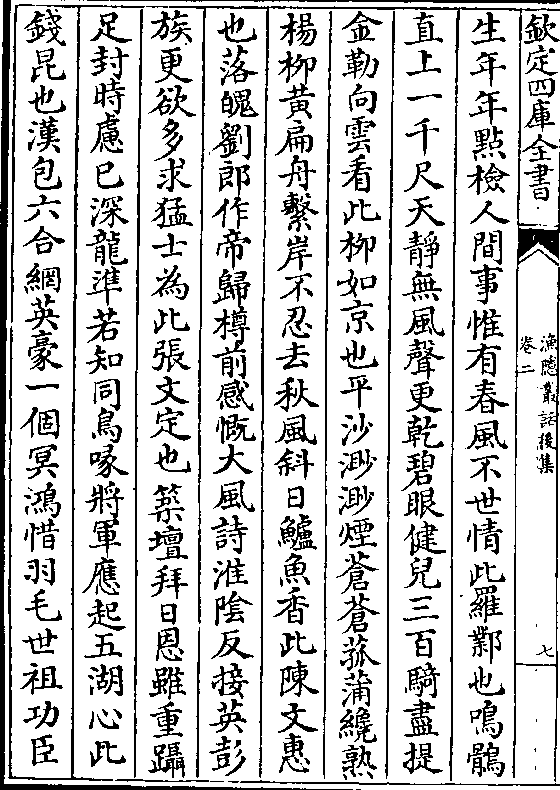 欽定四庫全書
漁隱叢話後集
卷二
七
生年年點檢人間事惟有春風不世情此羅鄴也鳴鶻
直上一千尺天靜無風聲更乾碧眼健兒三百騎盡提
金勒向雲看此柳如京也平沙渺渺煙蒼蒼菰蒲纔熟
楊柳黃扁舟繫岸不忍去秋風斜日鱸魚香此陳文惠
也落魄劉郎作帝歸樽前感慨大風詩淮陰反接英彭
族更欲多求猛士為此張文定也築壇拜日恩雖重躡
足封時慮已深龍準若知同鳥喙將軍應起五湖心此
錢昆也漢包六合網英豪一個冥鴻惜羽毛世祖功臣